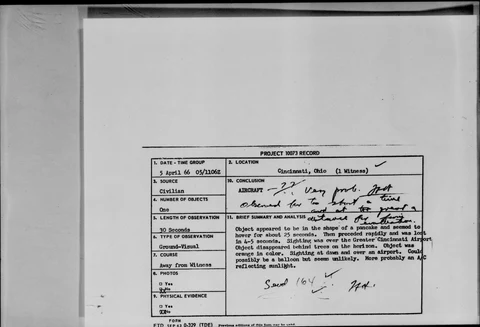 PROJECT 10073 RECORD
1. DATE - TIME GROUP
5 April 66 05/1106Z
2. LOCATION
Cincinnati, Ohio (1 Witness)
3. SOURCE
Civilian
10. CONCLUSION
AIRCRAFT - ?? Very prob. Not
observed for too short a time
and at too great a
distance for
4. NUMBER OF OBJECTS
One
5. LENGTH OF OBSERVATION
30 Seconds
11. BRIEF SUMMARY AND ANALYSIS
Object appeared to be in the shape of a pancake and seemed to
hover for about 25 seconds. Then preceded rapidly and was lost
in 4-5 seconds. Sighting was over the Greater Cincinnati Airport
Object disappeared behind trees on the horizon. Object was
orange in color. Sighting at dawn and over an airport. Could
possibly be a balloon but seems unlikely. More probably an A/C
reflecting sunlight.
6. TYPE OF OBSERVATION
Ground-Visual
7. COURSE
Away from Witness
8. PHOTOS
□ Yes
No
9. PHYSICAL EVIDENCE
□ Yes
No
Send 164
FORM
FTD SEP 63 0-329 (TDE) Previous editions of this form may be used.